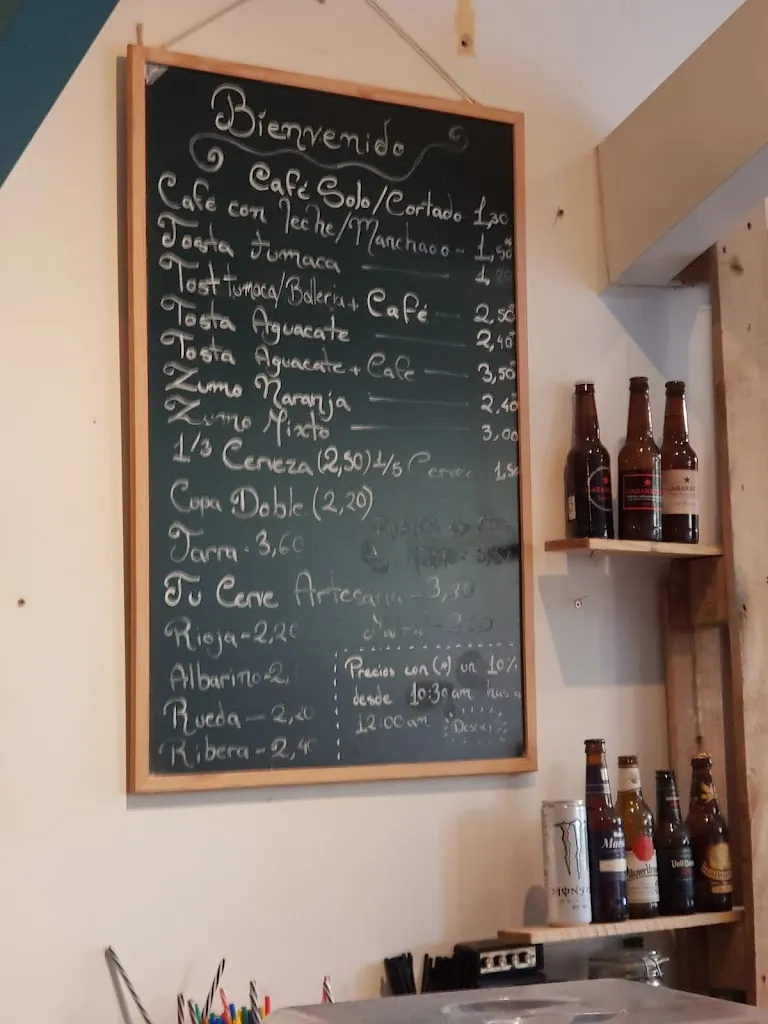 Bienvenido
Café Solo/Cortado 1,30
Café con leche/Manchado - 1,50*
Tosta tumaca 1,20
Tost tumaca/Bollería + Café 2,50*
Tosta Aguacate 2,40*
Tosta Aguacate + Café 3,50*
Zumo Naranja 2,40
Zumo Mixto 3,00
1/3 Cerveza (2,50) 1/5 Cerve 1,50
Copa Doble (2,20)
Jarra - 3,60
Tu Cerve Artesana - 3,20
Rioja - 2,20
Albarino - 2,
Rueda - 2,20
Ribera - 2,40
Precios con (*) un 10%
desde 10:30am hasta
12:00am